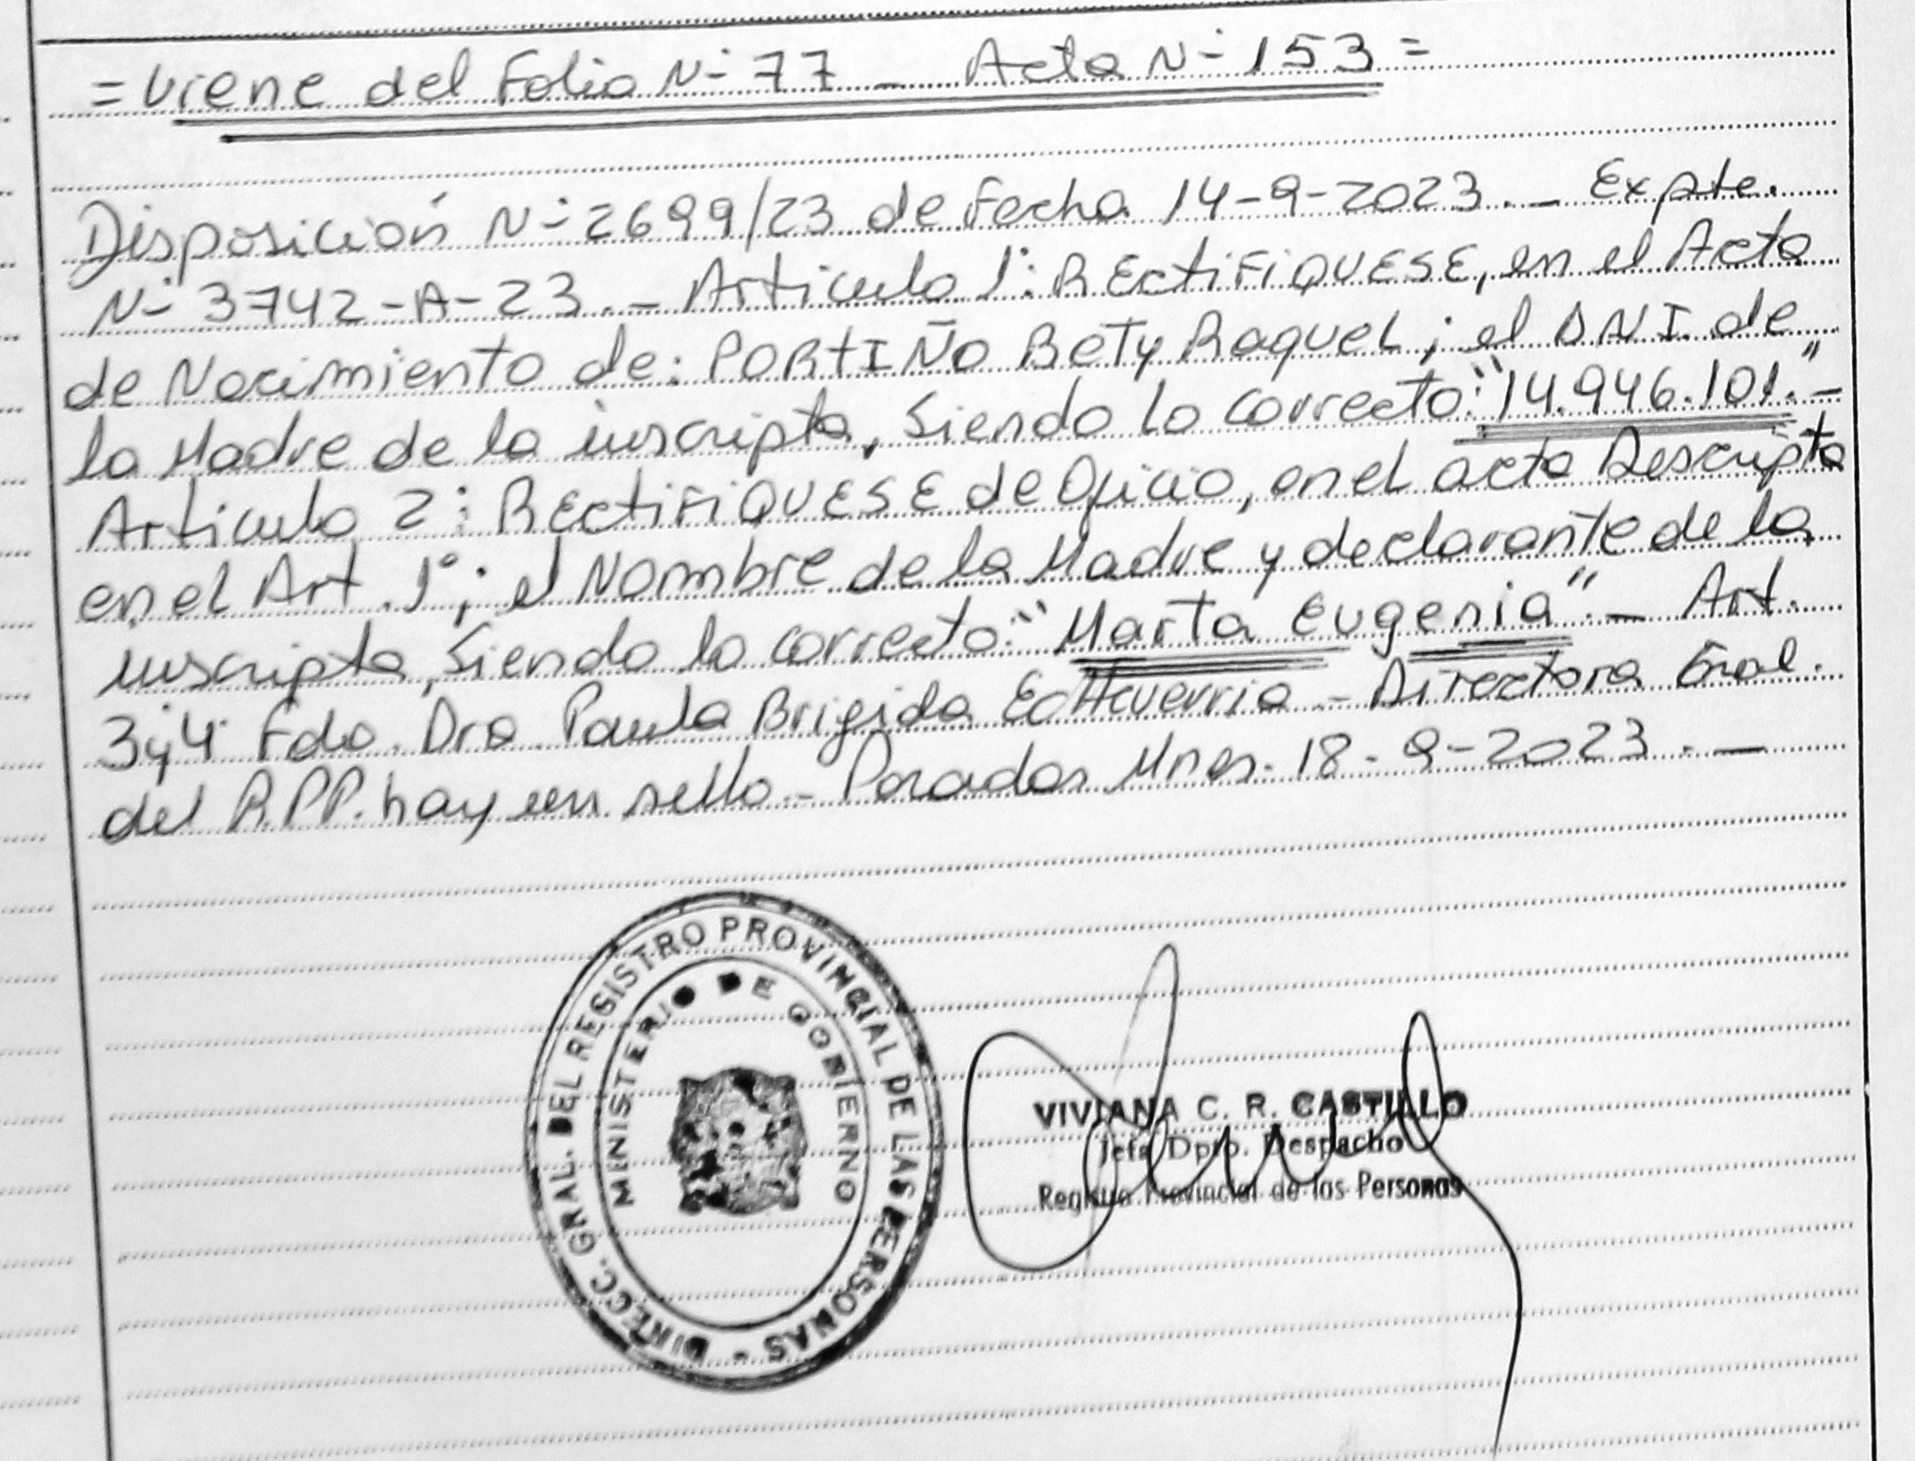 = Viene del Folio N° 77 - Acta N° 153 =
Disposición N° 2699/23 de Fecha 14-9-2023. - Expte.
N° 3742-A-23. - Articulo 1°: RECTIFIQUESE, en el Acta
de Nacimiento de: PORTIÑO BETY RAQUEL; el DNI. de
la Madre de la inscripta, Siendo lo correcto: "14.946.101." -
Articulo 2: RECTIFIQUESE de Oficio, en el acta Descripta
en el Art. 1°; el Nombre de la Madre y declarante de la
inscripta, Siendo lo correcto: "Marta Eugenia". - Art.
3 y 4 Fdo. Dra. Paula Brigida Echeverria - Directora Gral.
del R.P.P. hay un sello - Posadas Mnes. 18-9-2023. -
DIRECC. GRAL. DEL REGISTRO PROVINCIAL DE LAS PERSONAS -
MINISTERIO DE GOBIERNO
VIVIANA C. R. CASTILLO
Jefa Dpto. Despacho
Registro Provincial de las Personas